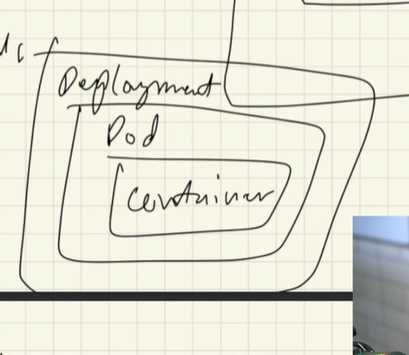 Deployment
Pod
Container